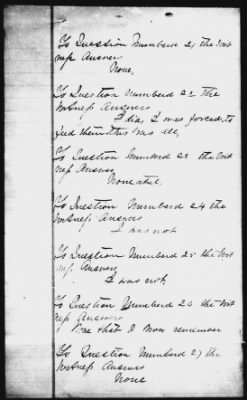 To Question Numberd 21 the wit
ness Answers
None,
To Question Numberd 22 The
witness Answers
I did, I was forced to
feed them this was all,
To Question Numberd 23 the wit
ness Answers
None at all.
To Question Numberd 24 the
witness Answers
I was not
To Question Numberd 25 the wit
ness Answers
I was not,
To Question Numberd 26 the wit
ness Answers
None that I now remember
To Question Numberd 27 the
witness Answers
None